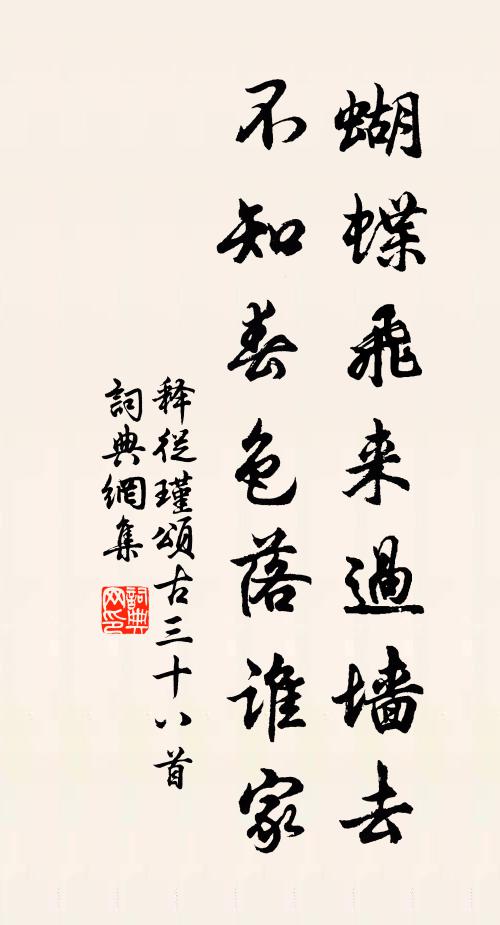 蝴蝶飛来過墙去
不知春色落谁家
释從瑾頌古三十八首
詞典網集
詞典网印